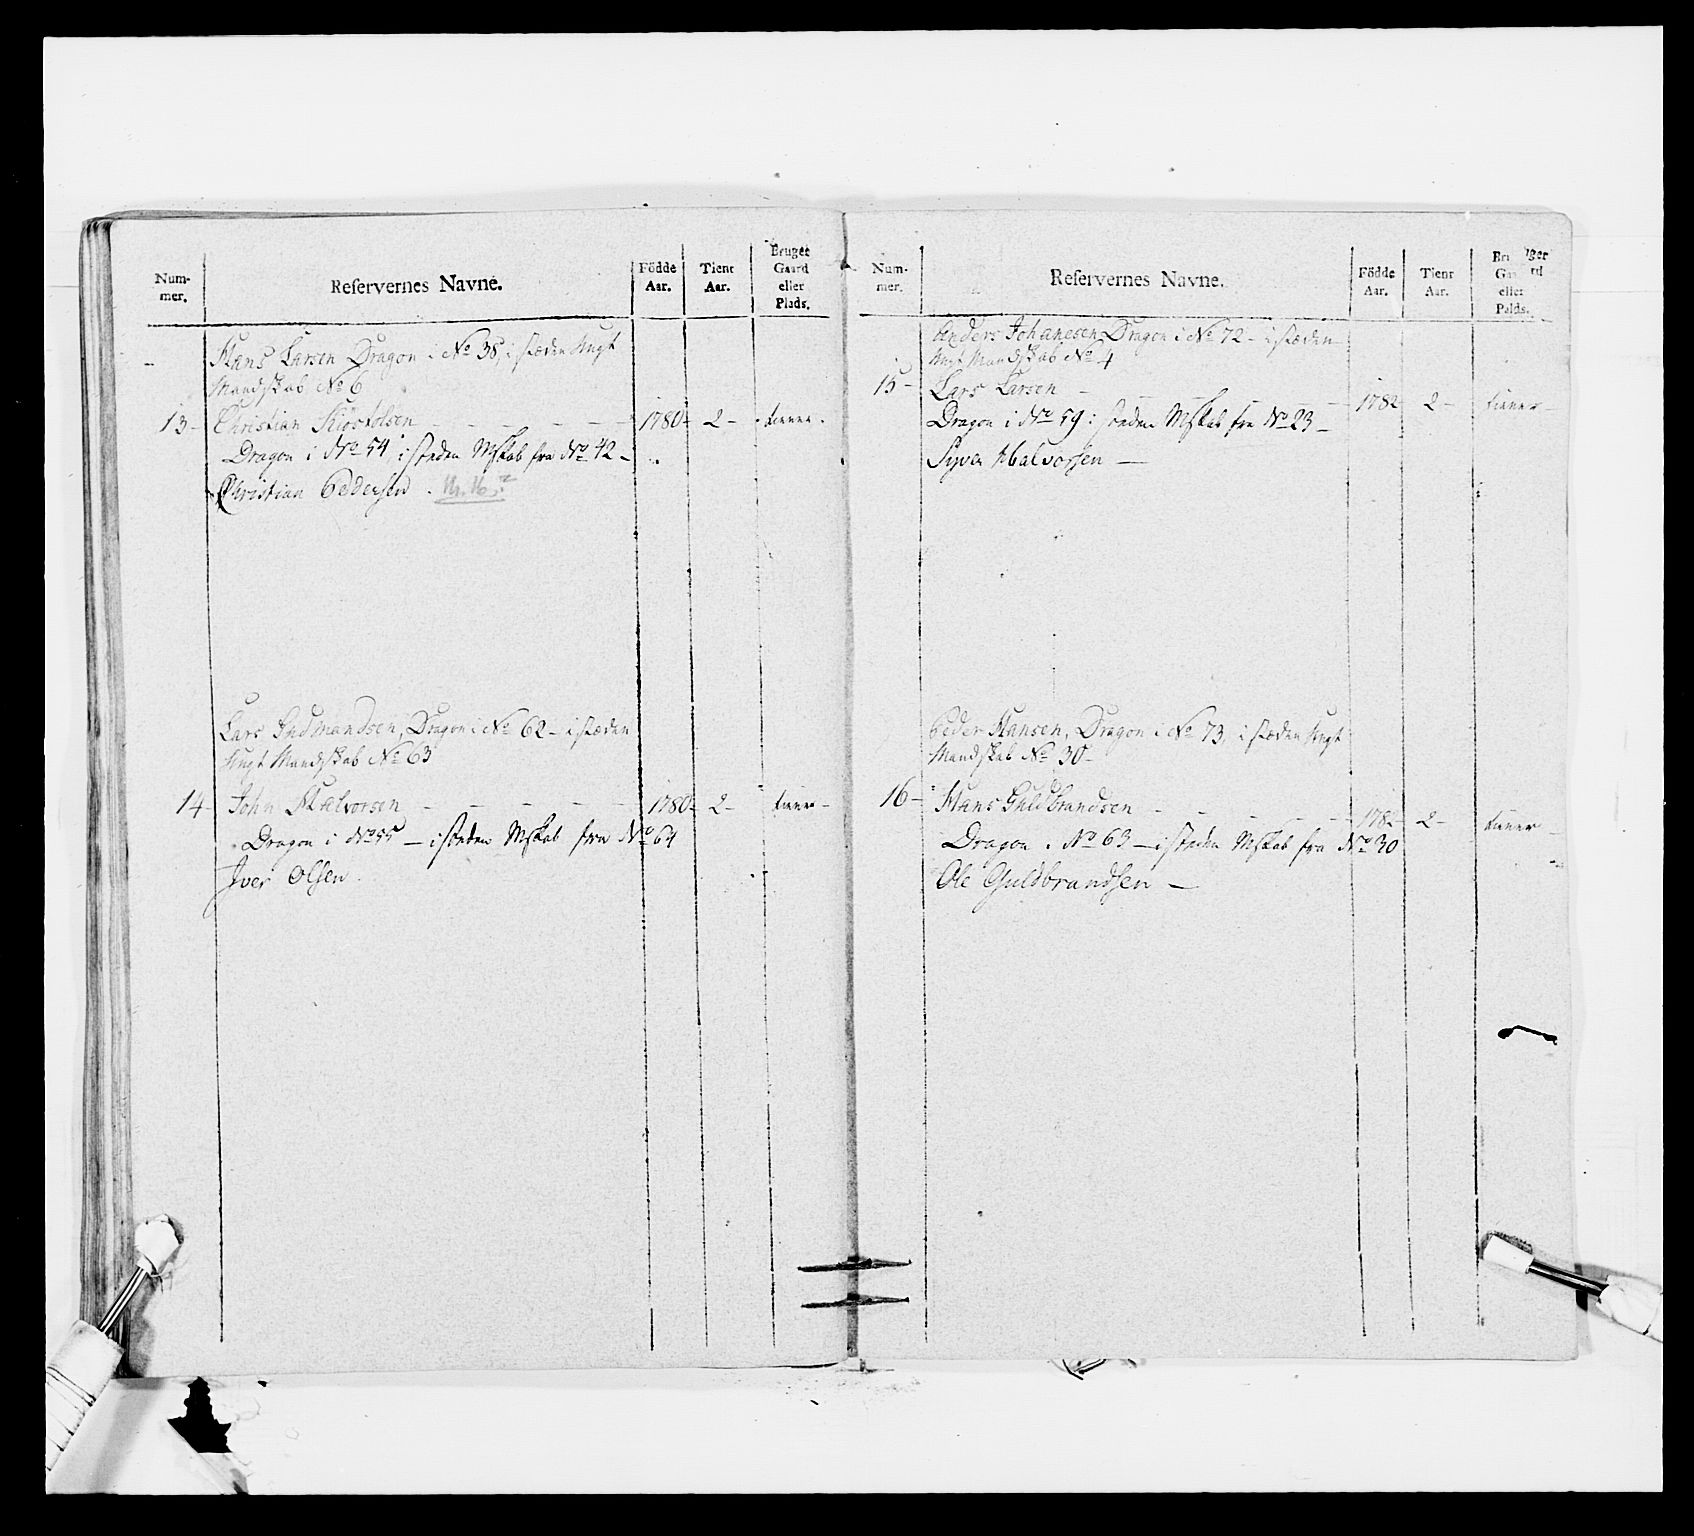 Num-
mer.
Reservernes Navne.
Födde
Aar.
Tient
Aar.
Bruger
Gaard
eller
Plads.
Hans Larsen Dragon i No 38, i stæden Ungt
Mandskab No 6
13- Christian Kiöstolsen - - - - - 1780- 2- tiener.
Dragon i No 54 i steden Mskab fra No 42-
Christian Pedersen. Nr. 16.
Lars Gudmandsen, Dragon i No 62- i stæden
Ungt Mandskab No 63
14- John Halvorsen - - - - - 1780- 2- tiener-
Dragon i No 55 - i steden Mskab fra No 64
Iver Olsen.
Num-
mer.
Reservernes Navne.
Födde
Aar.
Tient
Aar.
Bruger
Gaard
eller
Palds.
Anders Johanesen Dragon i No 72- i stæden
Ungt Mandskab No 4
15- Lars Larsen - - - - - 1782 2- tiener-
Dragon i No 59 i steden Mskab fra No 23-
Syver Halvorsen -
Peder Hansen, Dragon i No 73, i stæden Ungt
Mandskab No 30-
16- Hans Guldbrandsen - - - - - 1782- 2- tiener-
Dragon i No 63 - i steden Mskab fra No 30
Ole Guldbrandsen -